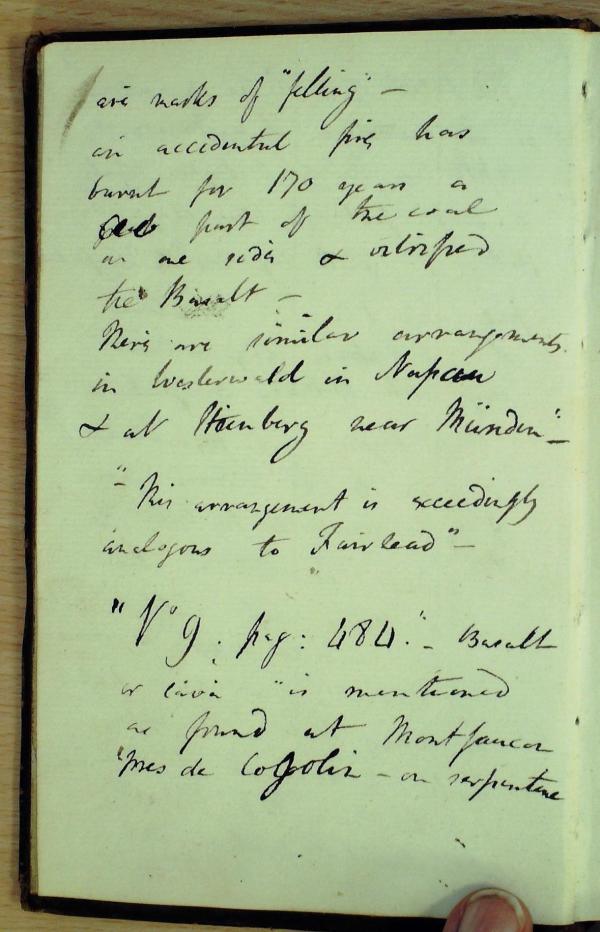 are marks of "felling" —
an accidental fire has
burnt for 170 years a
part of the coal
on one side & vitrified
the Basalt —
There are similar arrangements
in Westerwald in Nassau
& at near Münden" —
"This arrangement is exceedingly
analogous to Fairhead" —
"V 9. pag: 484." — Basalt
or lava "is mentioned
as found at Montfaucon
"près de Cogolin — on serpentine